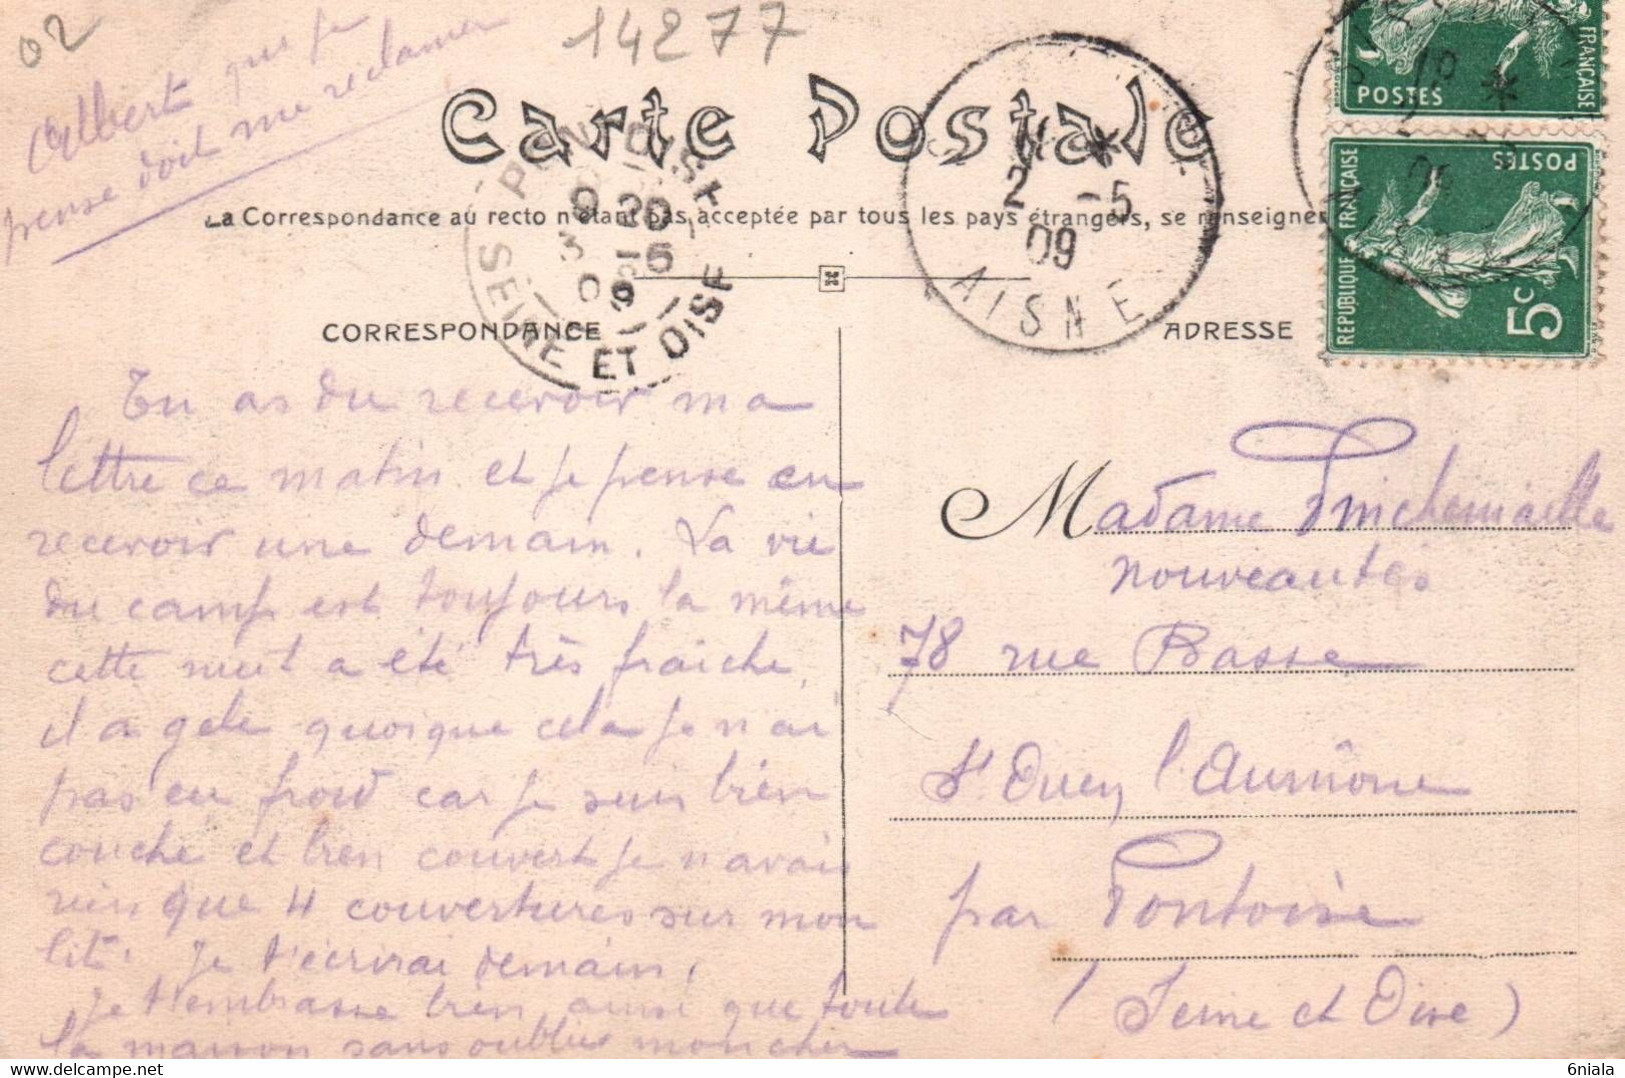 02
14277
Albert que je
pense doit me réclamer
Carte Postale
La Correspondance au recto n'étant pas acceptée par tous les pays étrangers, se renseigner
9 20
3 -5
09
SEINE ET OISE
2 -5
09
AISNE
POSTES
FRANÇAISE
POSTES
REPUBLIQUE FRANÇAISE
5c
CORRESPONDANCE
ADRESSE
Tu as du recevoir ma
lettre ce matin et je pense en
recevoir une demain. La vie
du camp est toujours la même
cette nuit a été très fraiche
il a gelé quoique cela je n'ai
pas eu froid car je suis bien
couché et bien couvert je n'avais
rien que 4 couvertures sur mon
lit. Je t'écrirai demain,
Je t'embrasse bien ainsi que toute
la maison sans oublier mon cher
Madame Pinchemaille
nouveautés
78 rue Basse
St Ouen l'Aumône
par Pontoise
(Seine et Oise)
6niala